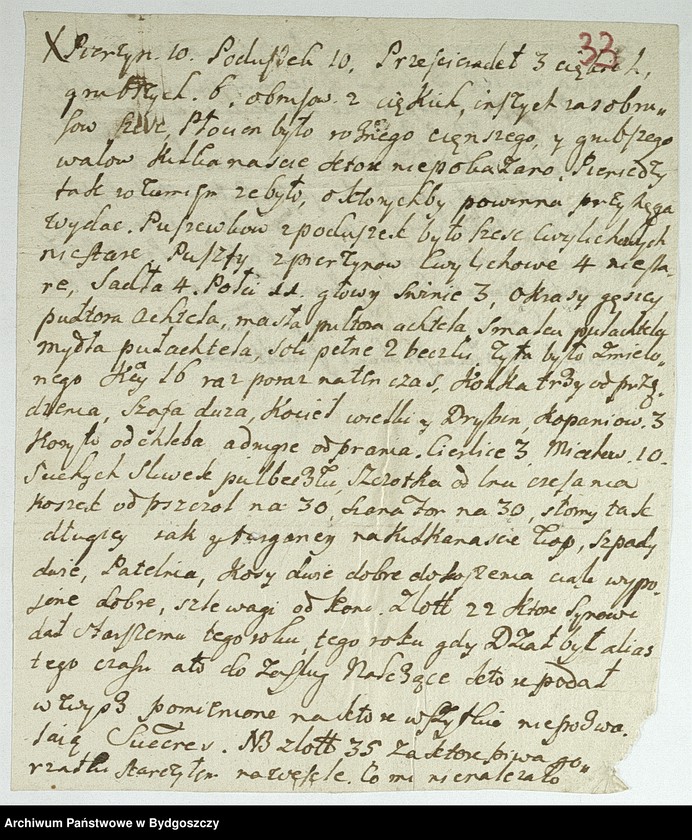 33
X Pierzyn. 10. Poduszek 10. Prześcieradeł 3 ciękich,
grubszych. 6. obrusow. 2 cięskich, inszych za obru„
sow sześc, Płocien było rożnego cięnszego, y grubszego
wałow kilkanascie ktore niepokazano. Pieniędzy
tak rozumiem że były, o ktorychby powinna przysięga
wydac. Puszewkow z poduszek było sześc Cwylichowych
niestare, Puszfy z pierzynow Cwylichowe 4 niesta-
re, Sadła 4. Połci 11. głowy swinie 3, okrasy gęsiey
pułtora achtela, masła pułtora achtela smalcu pułachtela
mydła pułachtela, soli pełne 2 beczki. Żyta było zmielo„
nego 16 raz poraz na ten czas, kołka trzy od przę„
dzenia, szafa duza, kocieł wielki y Drybin, kopaniow. 3
koryto od chleba, a drugie od prania. Cieślice 3, Miechow. 10.
Suchych sliwek puł beczki, szczotka od lnu czesania
koszek od pszczoł na 30, na 30, słomy tak
długiey iak y targaney na kilkanascie kop, szpady
dwie, Patelnia, kosy dwie dobre do koszenia
dobre, sztewagi od koni. Złott 22 ktore synowi
dał starszemu tego roku, tego roku gdy Dział był alias
tego czasu ato do zasług Należące ktore podał
wzwyż pomienione na ktore wszytkie
saią Succres. NB złott 35 za ktore piwa go„
rzałki starczyłem na wesele. Co mi nienależało
Archiwum Państwowe w Bydgoszczy